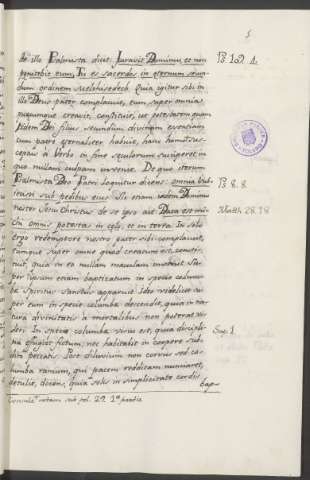 5
de illo Psalmista dicit Juravit Dominus et non
pœnitebit eum, Tu es sacerdos in eternum secun-
dum ordinem Melchisedech. Quia igitur sibi in
illo Deus pater complacuit, eum super omnia
quæcumque creavit, constituit, ut potestatem quam
idem Dei filius secundum divinam essentiam
cum patre eternaliter habuit, hanc homo sus-
ceptus à Verbo in fine seculorum susciperet, in
quo nullam culpam invenit. De quo iterum
Psalmista Deo Patri loquitur dicens: omnia sub-
iecisti sub pedibus eius. Hic etiam idem Dominus
noster Jesu Christus de se ipso ait Data est mi-
hi omnis potestas in celo, et in terra. In solo
ergo redemptore nostro pater sibi complacuit,
eumque super omne quod creatum est, consti-
tuit, quia in eo nullam maculam invenit. Su-
per ipsum etiam baptizatum in specie colum-
bæ Spiritus Sanctus apparuit. Ideo visibilis su-
per eum in specie columbæ descendit, quia in na-
tura divinitatis à mortalibus non poterat vi-
deri. In specie columbæ visus est, quia discipli-
næ effugiet fictum, nec habitabit in corpore sub-
dito peccatis. Post diluvium non corvus sed co-
lumba ramum, qui pacem redditam nunciaret,
detulit, dicens, quia solis in simplicitate cordis
bap-
Ps 109. 4.
Ps 8. 8.
Matth. 28. 18
Sap. 1
notam sub fol. 22. 1æ partis